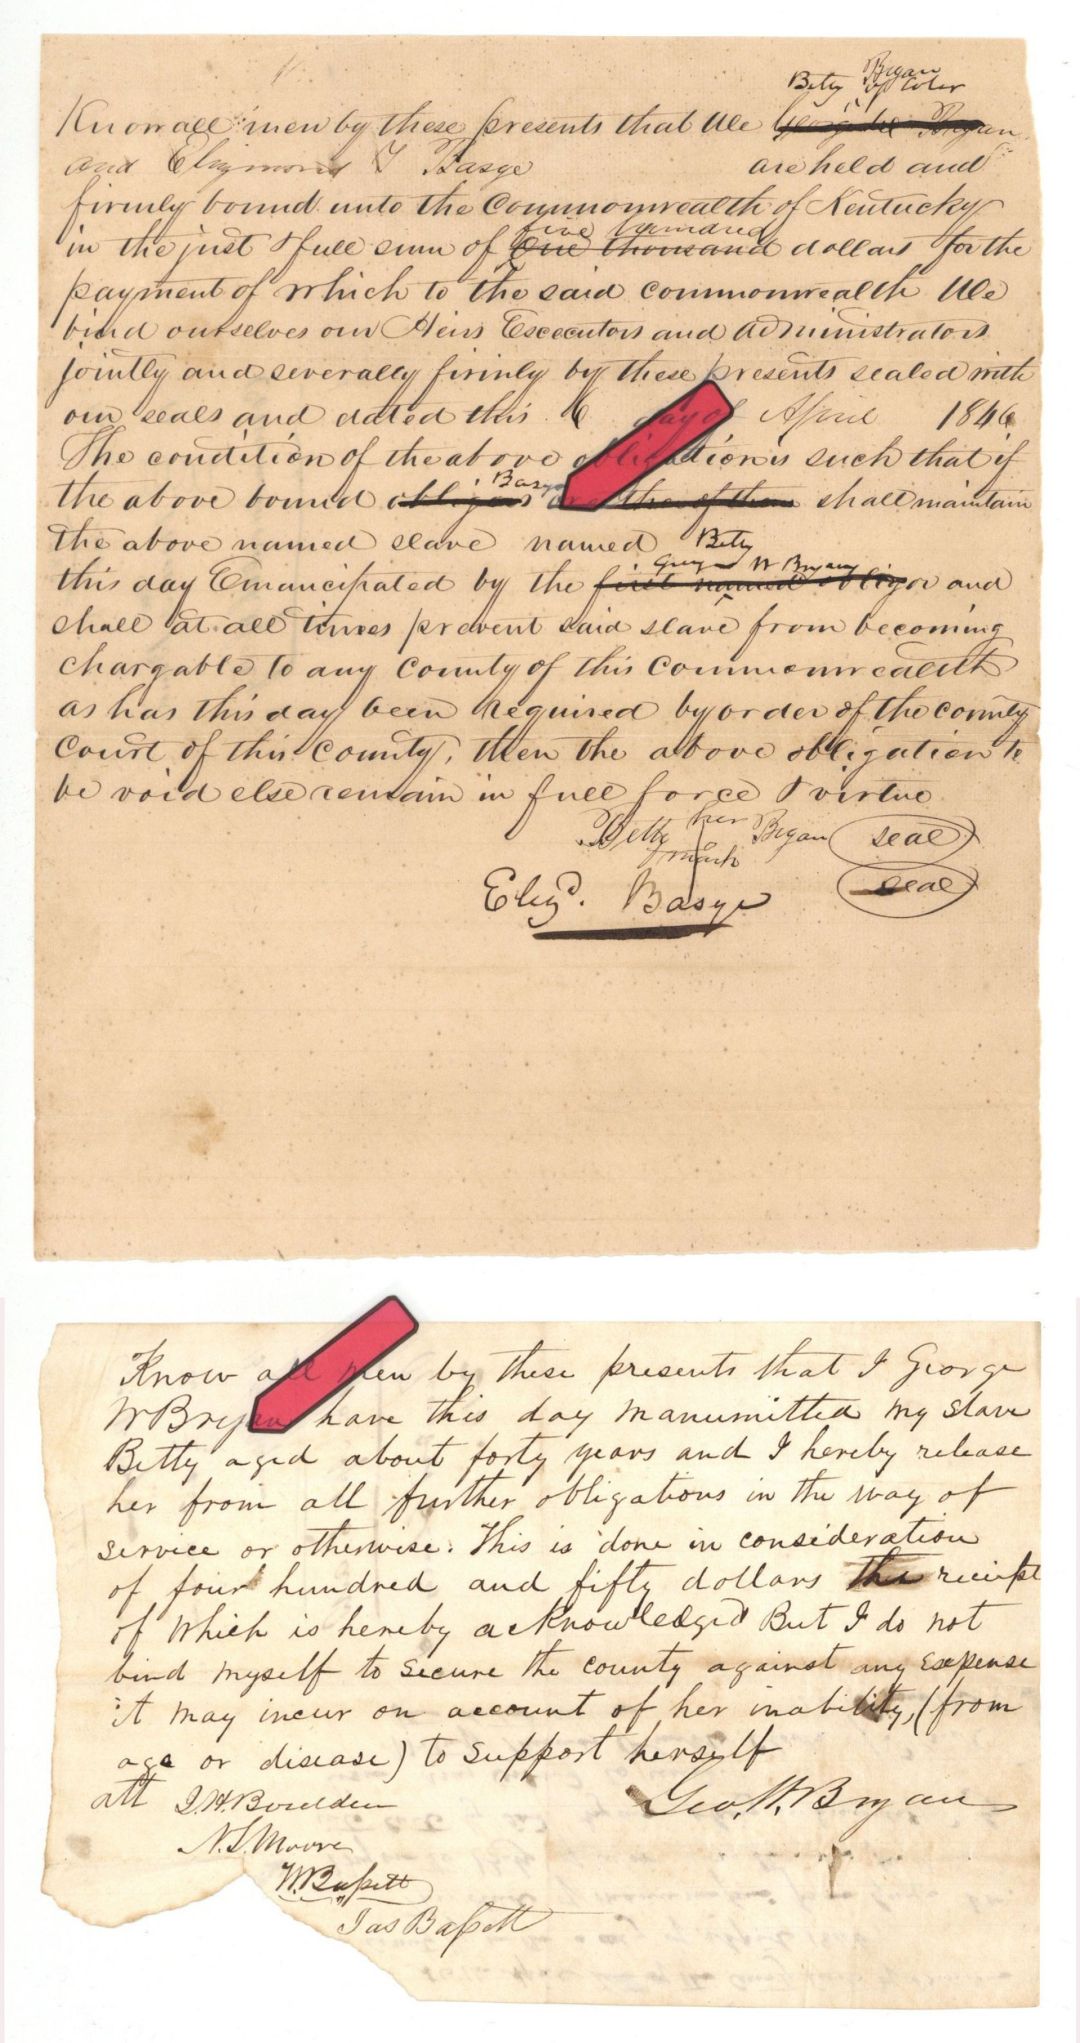 Bryan
Bety of Coler
Know all men by these presents that We George W Bryan
and Eligmond Basye are held and
firmly bound unto the Commonwealth of Kentucky
five hundred
in the just & full sum of One thousand dollars for the
payment of which to the said commonwealth We
bind ourselves our Heirs Excecutors and Administrators
jointly and severally firmly by these presents sealed with
our seals and dated this 6 day of April 1846
The condition of the above obligation is such that if
Basye
the above bound obligors or either of them shall maintain
the above named slave named Bety
George W Bryan
this day Emancipated by the first named obligor and
shall at all times prevent said slave from becoming
chargable to any county of this Commonwealth
as has this day been required by order of the county
Court of this county, then the above obligation to
be void else remain in full force & virtue
Betty her mark Bryan seal
Eligd. Basye seal
Know all men by these presents that I George
W Bryan have this day manumitted my slave
Betty aged about forty years and I hereby release
her from all further obligations in the way of
service or otherwise. This is done in consideration
of four hundred and fifty dollars the reciept
of which is hereby acknowledged But I do not
bind myself to secure the county against any expense
it may incur on account of her inability, (from
age or disease) to support herself
att J. H. Boulden Geo. W. Bryan
N. S. Moore
W Bassett
Jas Bassett